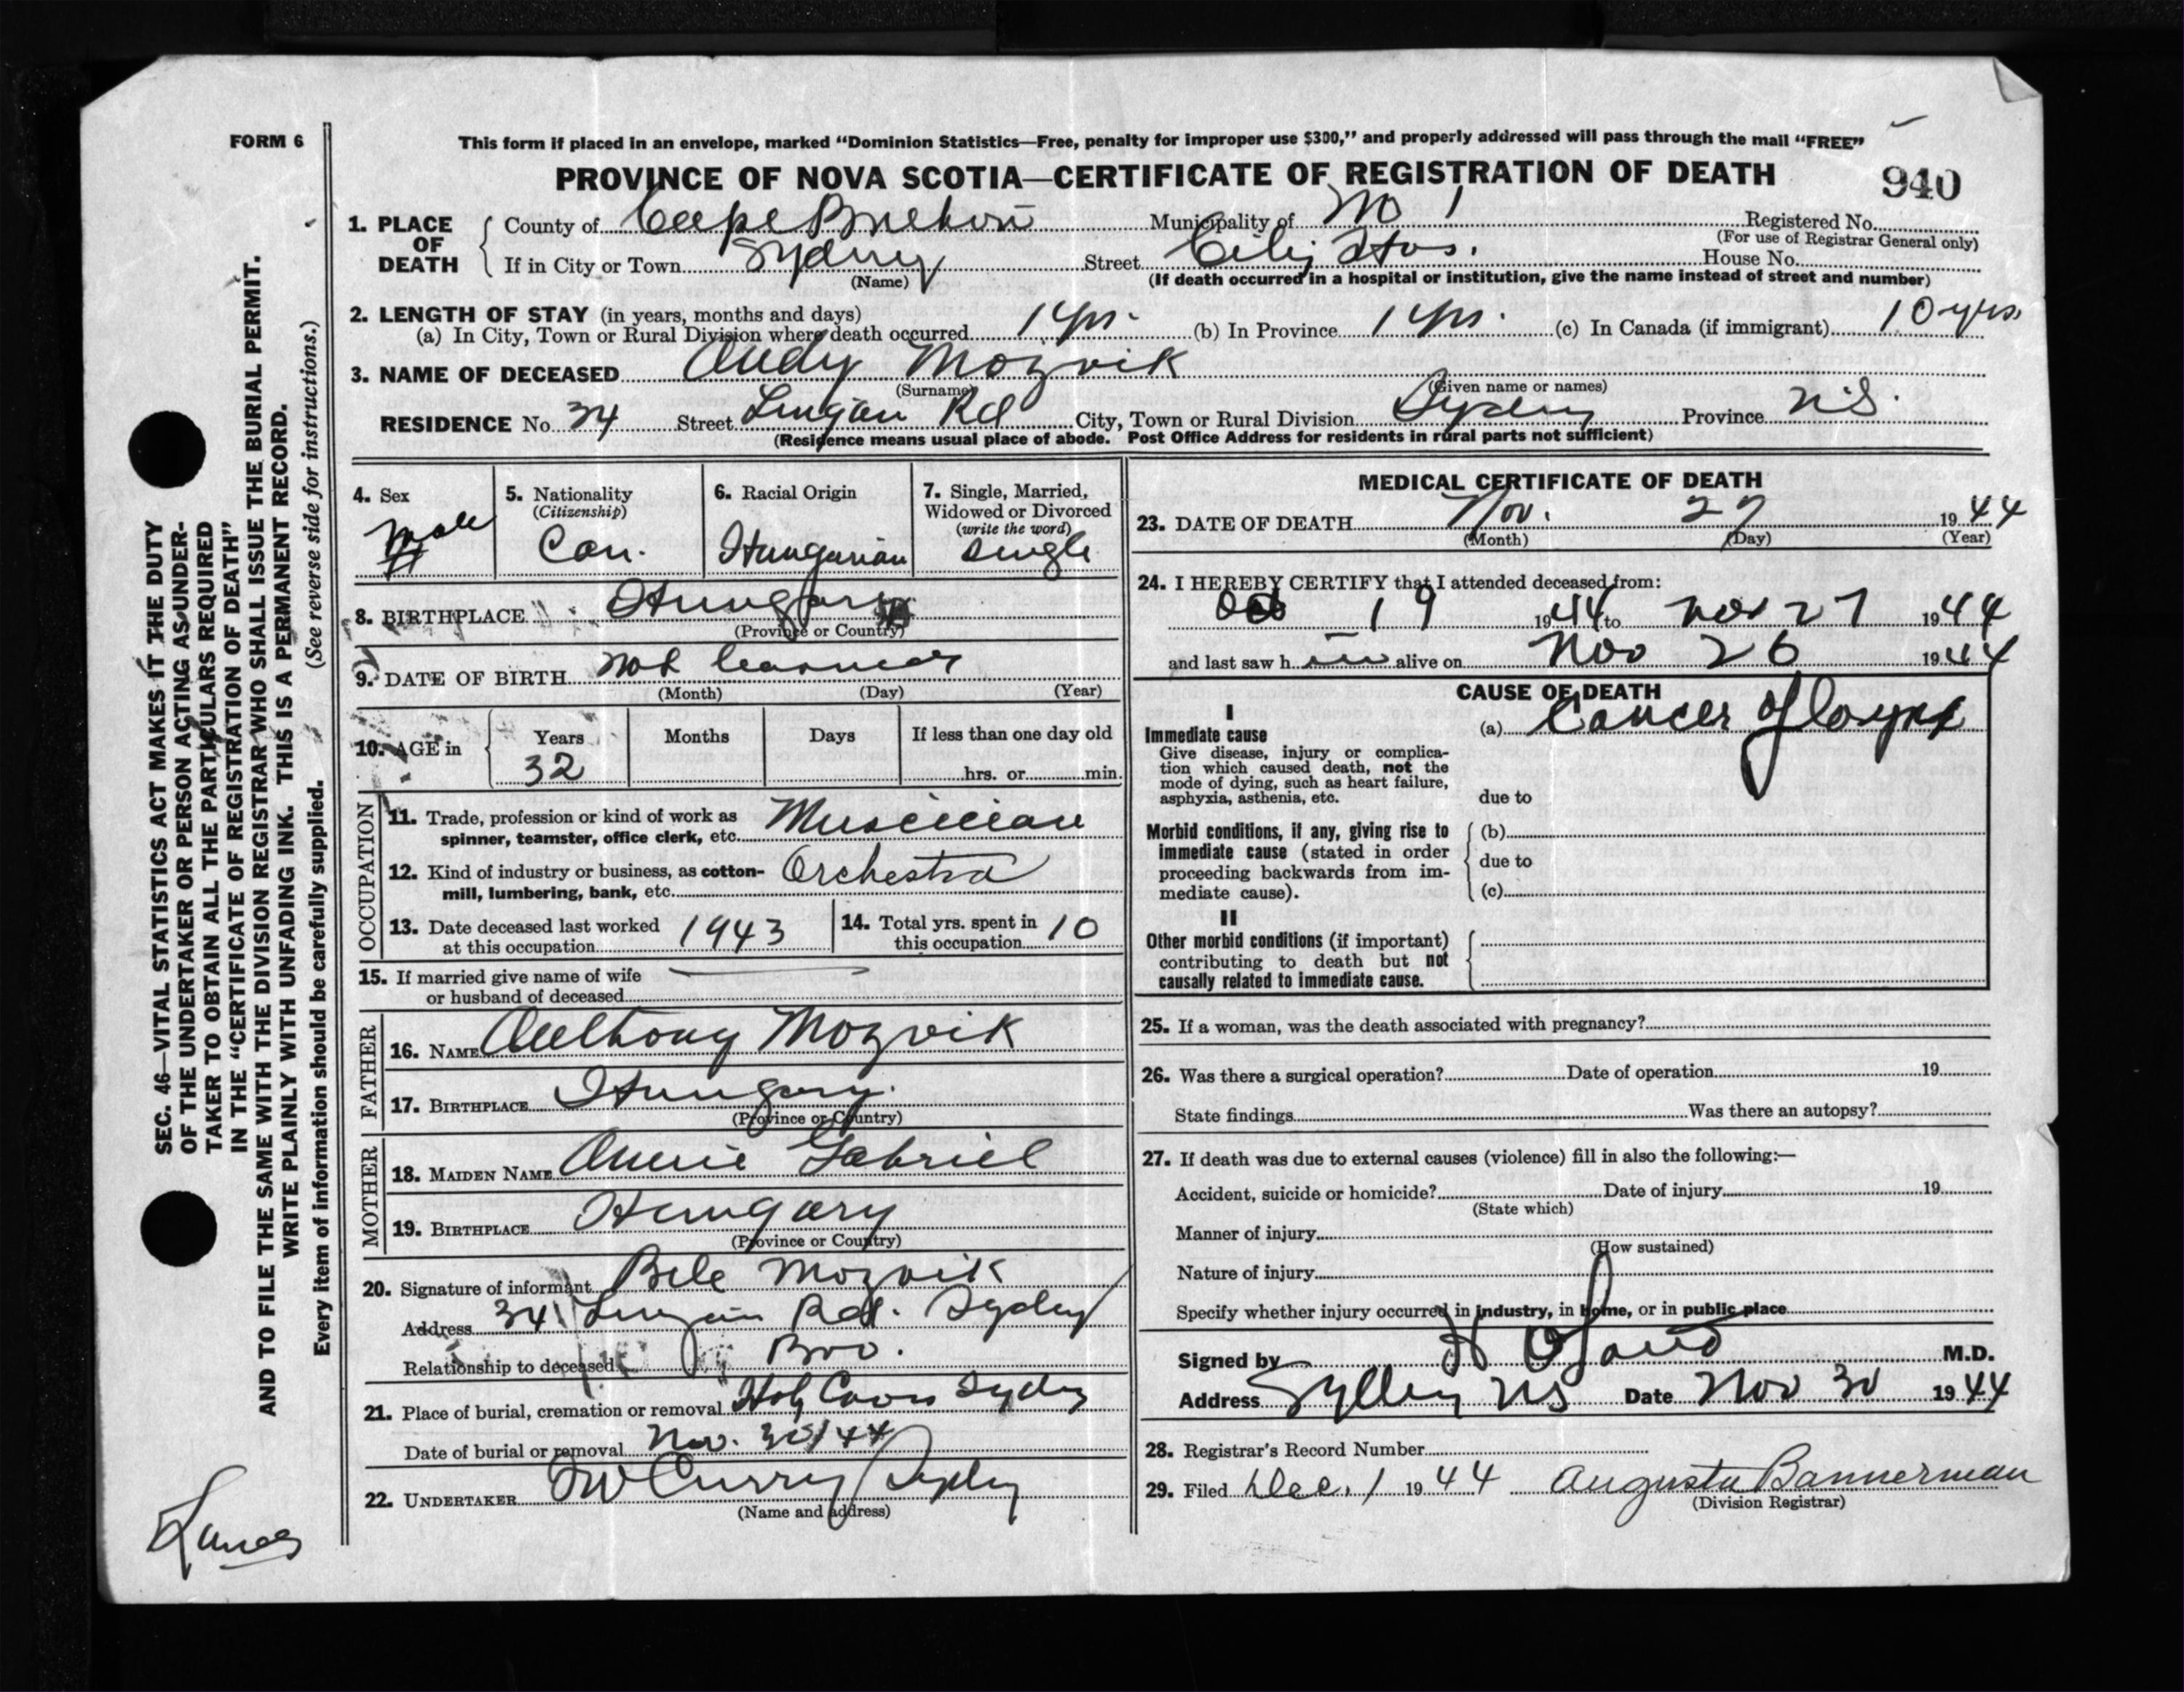 FORM 6
This form if placed in an envelope, marked "Dominion Statistics—Free, penalty for improper use $300," and properly addressed will pass through the mail "FREE"
PROVINCE OF NOVA SCOTIA—CERTIFICATE OF REGISTRATION OF DEATH
940
1. PLACE OF DEATH
County of Cape Breton Municipality of No 1 Registered No.
(For use of Registrar General only)
If in City or Town Sydney Street City Hos. House No.
(Name) (If death occurred in a hospital or institution, give the name instead of street and number)
2. LENGTH OF STAY (in years, months and days)
(a) In City, Town or Rural Division where death occurred 1 yr. (b) In Province 1 yr. (c) In Canada (if immigrant) 10 yrs.
3. NAME OF DECEASED Andy Mozvik
(Surname) (Given name or names)
RESIDENCE No. 34 Street Lingan Rd City, Town or Rural Division Sydney Province N.S.
(Residence means usual place of abode. Post Office Address for residents in rural parts not sufficient)
4. Sex
Male
5. Nationality
(Citizenship)
Can.
6. Racial Origin
Hungarian
7. Single, Married,
Widowed or Divorced
(write the word)
Single
8. BIRTHPLACE Hungary
(Province or Country)
9. DATE OF BIRTH Not
(Month) (Day) (Year)
10. AGE in Years Months Days If less than one day old
32 hrs. or min.
OCCUPATION
11. Trade, profession or kind of work as
spinner, teamster, office clerk, etc. Muscician
12. Kind of industry or business, as cotton-
mill, lumbering, bank, etc. Orchestra
13. Date deceased last worked
at this occupation 1943
14. Total yrs. spent in
this occupation 10
15. If married give name of wife
or husband of deceased
FATHER
16. NAME Anthony Mozvik
17. BIRTHPLACE Hungary.
(Province or Country)
MOTHER
18. MAIDEN NAME Annie Gabriel
19. BIRTHPLACE Hungary
(Province or Country)
20. Signature of informant Bele Mozvik
Address 34 Lingan Rd. Sydney
Relationship to deceased Bro.
21. Place of burial, cremation or removal Holy Cross Sydney
Date of burial or removal Nov. 30/44
22. UNDERTAKER Curry Sydney
(Name and address)
MEDICAL CERTIFICATE OF DEATH
23. DATE OF DEATH Nov. 27 1944
(Month) (Day) (Year)
24. I HEREBY CERTIFY that I attended deceased from:
Oct 19 1944 to Nov 27 1944
and last saw him alive on Nov 26 1944
CAUSE OF DEATH
I
Immediate cause
Give disease, injury or complica-
tion which caused death, not the
mode of dying, such as heart failure,
asphyxia, asthenia, etc.
(a) Cancer of
due to
Morbid conditions, if any, giving rise to
immediate cause (stated in order
proceeding backwards from im-
mediate cause).
(b)
due to
(c)
II
Other morbid conditions (if important)
contributing to death but not
causally related to immediate cause.
25. If a woman, was the death associated with pregnancy?
26. Was there a surgical operation? Date of operation 19
State findings Was there an autopsy?
27. If death was due to external causes (violence) fill in also the following:—
Accident, suicide or homicide? Date of injury 19
(State which)
Manner of injury
(How sustained)
Nature of injury
Specify whether injury occurred in industry, in home, or in public place
Signed by M.D.
Address Sydney NS Date Nov 30 1944
28. Registrar's Record Number
29. Filed Dec. 1 1944 Augusta Bannerman
(Division Registrar)
SEC. 46—VITAL STATISTICS ACT MAKES IT THE DUTY
OF THE UNDERTAKER OR PERSON ACTING AS UNDER-
TAKER TO OBTAIN ALL THE PARTICULARS REQUIRED
IN THE "CERTIFICATE OF REGISTRATION OF DEATH"
AND TO FILE THE SAME WITH THE DIVISION REGISTRAR WHO SHALL ISSUE THE BURIAL PERMIT.
WRITE PLAINLY WITH UNFADING INK. THIS IS A PERMANENT RECORD.
Every item of information should be carefully supplied. (See reverse side for instructions.)